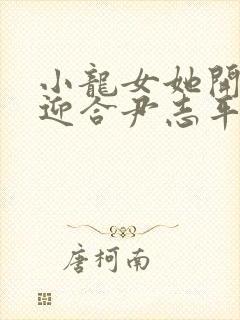 小龍女她開
迎合尹志平
唐柯南